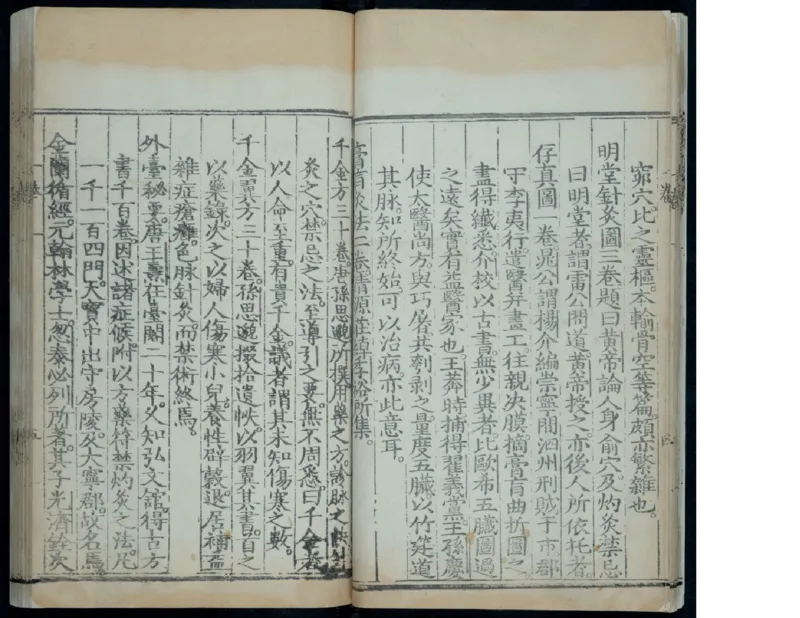 窌穴比之靈樞本輸骨空等篇頗亦繁雜也
明堂針灸圖三卷題曰黃帝論人身俞穴及灼灸禁忌
曰明堂者謂雷公問道黃帝授之亦後人所依托者
存真圖一卷晁公謂楊介編崇寧間泗州刑賊于市郡
守李夷行遣醫并畫工往親决膜摘膏肓曲折圖之
盡得纖悉介校以古書無少異者比歐希五臟圖過
之遠矣實有益醫家也王莽時捕得翟義黨王孫慶
使太醫尚方與巧屠共刳剥之量度五臟以竹筳道
其脉知所終始可以治病亦此意耳
膏肓灸法二卷清源莊綽季裕所集
千金方三十卷唐孫思邈所撰用藥之方診脉之訣針
灸之穴禁忌之法至導引之要無不周悉曰千金者
以人命至重有貴千金議者謂其未知傷寒之數
千金翼方三十卷孫思邈掇拾遺帙以羽翼其書首之
以藥錄次之以婦人傷寒小兒養性辟穀退居補益
雜症瘡癰色脉針灸而禁術終焉
外臺秘要唐王燾在臺閣二十年久知弘文舘得古方
書千百卷因述諸症候附以方藥符禁灼灸之法凡
一千一百四門天寶中出守房陵及大寧郡故名焉
金蘭循經元翰林學士忽泰必列所著其子光濟銓次